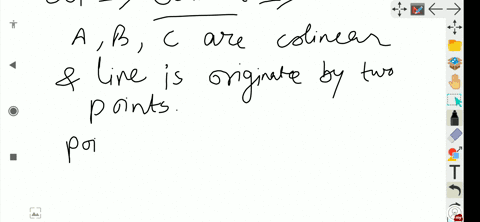 A, B, C are colinear
& line is originate by two
points.
poi